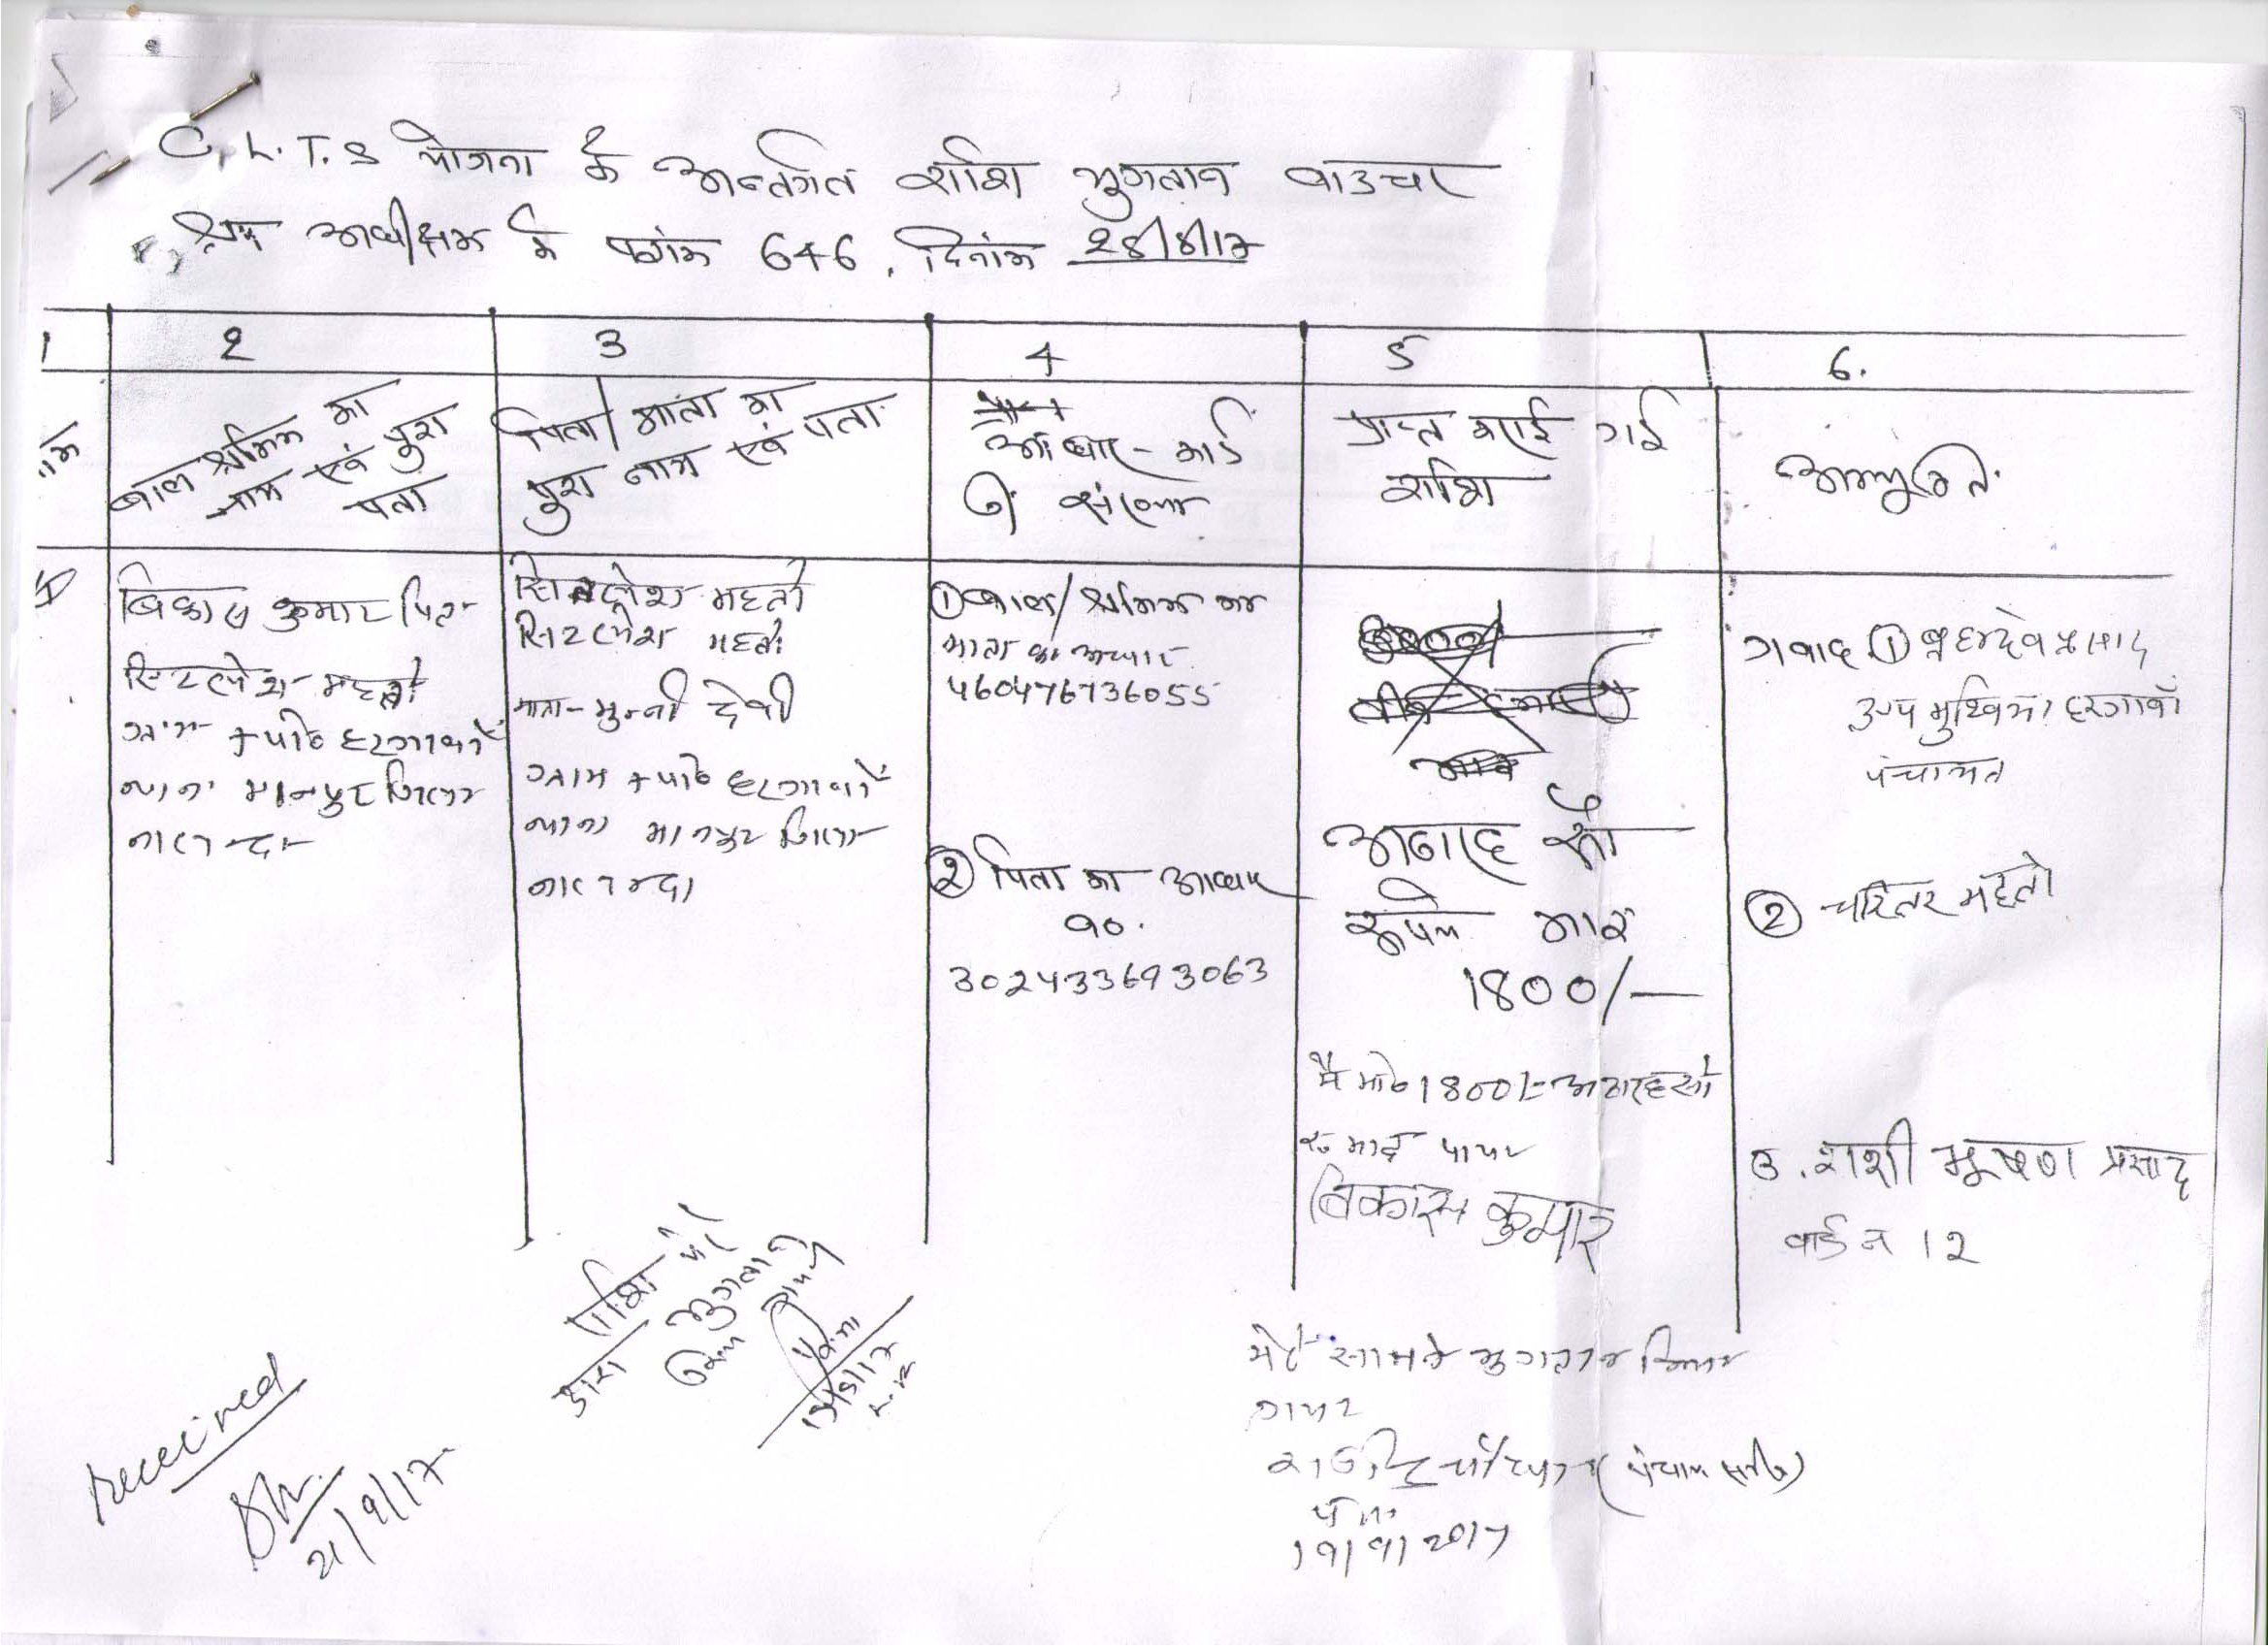 C.L.T.S योजना के अन्तर्गत राशि भुगतान वाउचर
श्रम अधीक्षक के पत्रांक 646, दिनांक 28/8/17
1 2 3 4 5 6.
बाल श्रमिक का
नाम एवं पुरा
पता
पिता/माता का
पुरा नाम एवं पता
आधार-कार्ड
की संख्या
प्राप्त कराई गई
राशि
अभ्युक्ति
बिकास कुमार पिता
सिटलेश महतो
ग्राम + पो० हरगावाँ
थाना मानपुर जिला
नालन्दा
महतो
सिटलेश महतो
माता-मुन्नी देवी
ग्राम + पो० हरगावाँ
थाना मानपुर जिला
नालन्दा
① बाल/श्रमिक का
माता का आधार
460476736055
② पिता का आधार
न०.
302433693063
अठारह सौ
रूपये मात्र
1800/—
मै मो० 1800/- अठारह सौ
रु० मात्र पाया
बिकास कुमार
गवाह ① ब्रहमदेव प्रसाद
उप मुखिया हरगावाँ
पंचायत
② चरितर महतो
3. शशी भूषण प्रसाद
वार्ड न 12
राशि मेरे
द्वारा भुगतान
किया गया
मेरे सामने भुगतान किया
गया
(पंचायत सचिव)
19/9/2017
Received
21/9/17